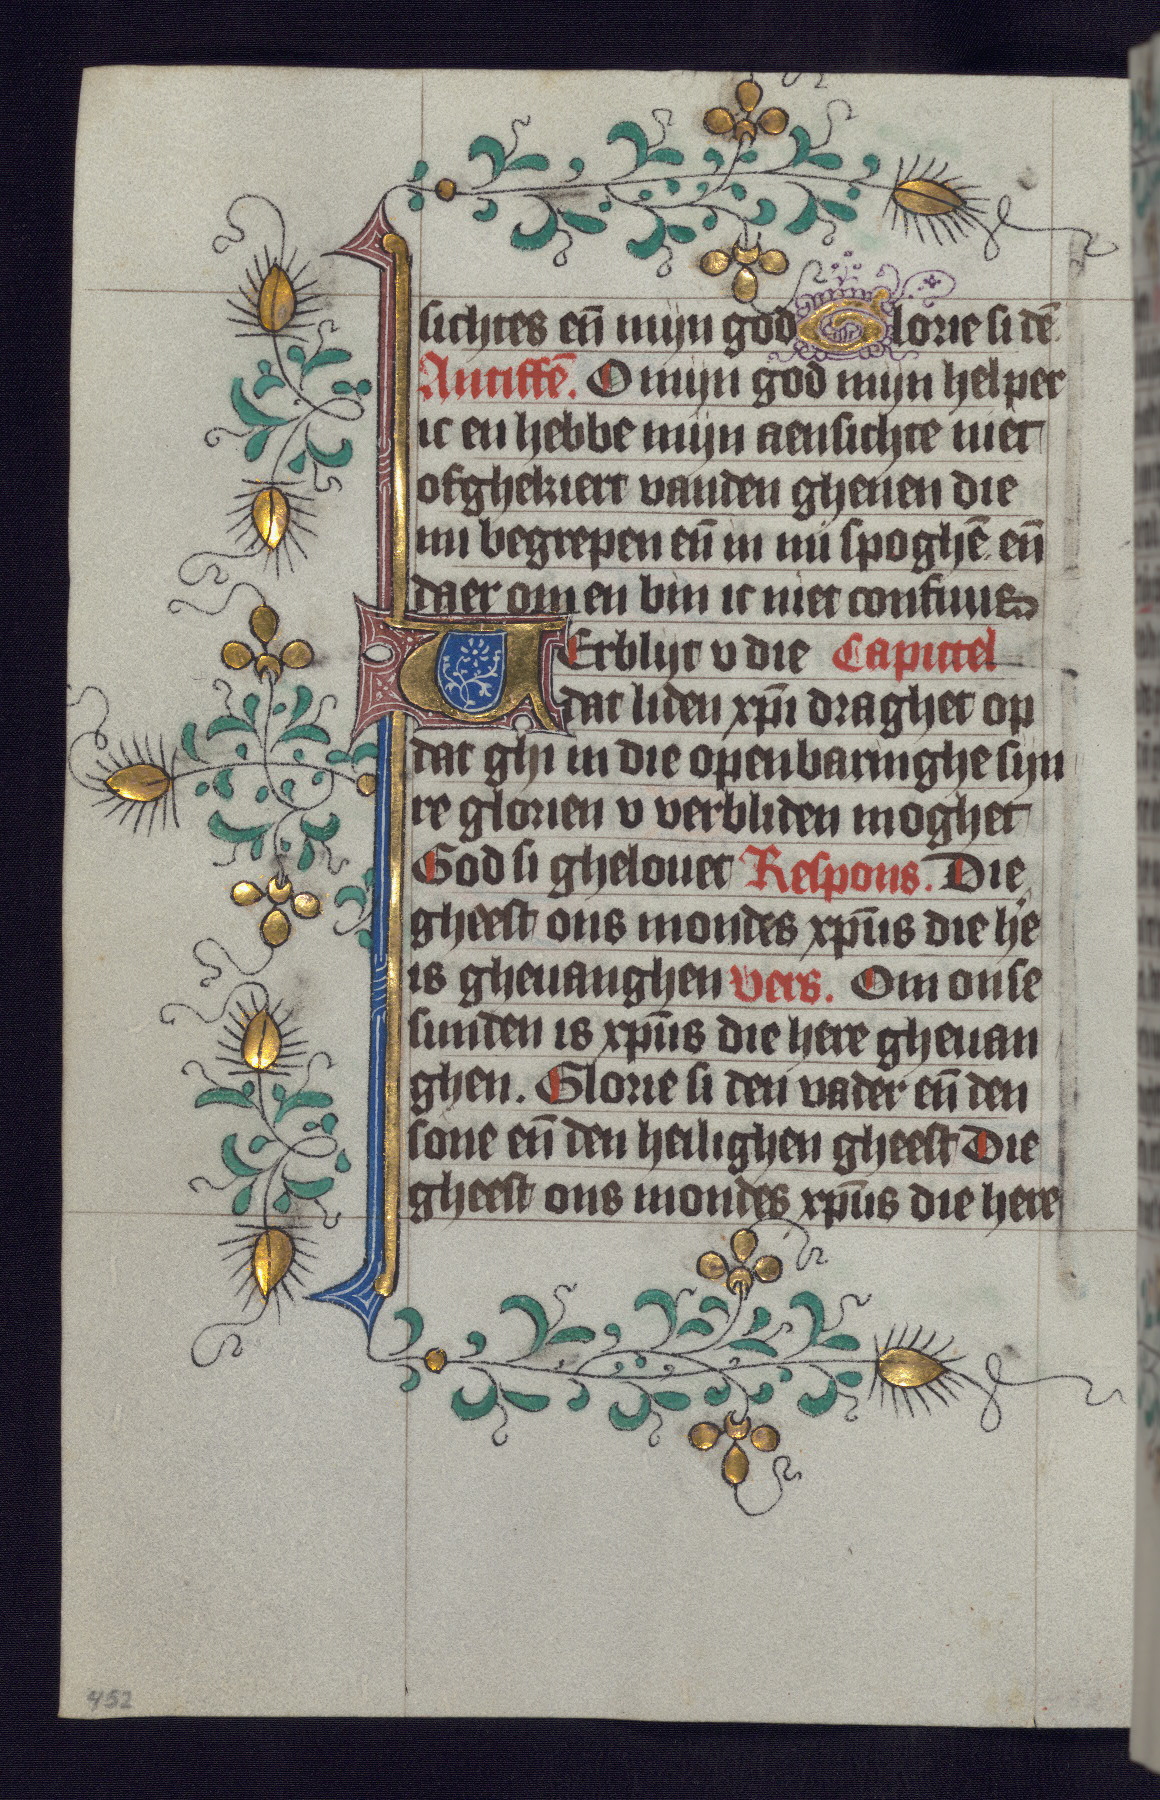 sichtes en̄ mijn god Glorie si dē
Antiffē. O mijn god mijn helper
ic en hebbe mijn aensichte niet
ofghekiert vanden ghenen die
mi begrepen en̄ in mi spoghē en̄
daer om en bin ic niet confuus
VErblijt v die Capittel
dat liden xp̄i draghet op
dat ghi in die openbaringhe sijn
re glorien v verbliden moghet
God si ghelouet Respons. Die
gheest ons mondes xp̄us die he
is gheuanghen vers. Om onse
sunden is xp̄us die here gheuan
ghen. Glorie si den vader en̄ den
sone en̄ den heilighen gheest Die
gheest ons mondes xp̄us die here
452